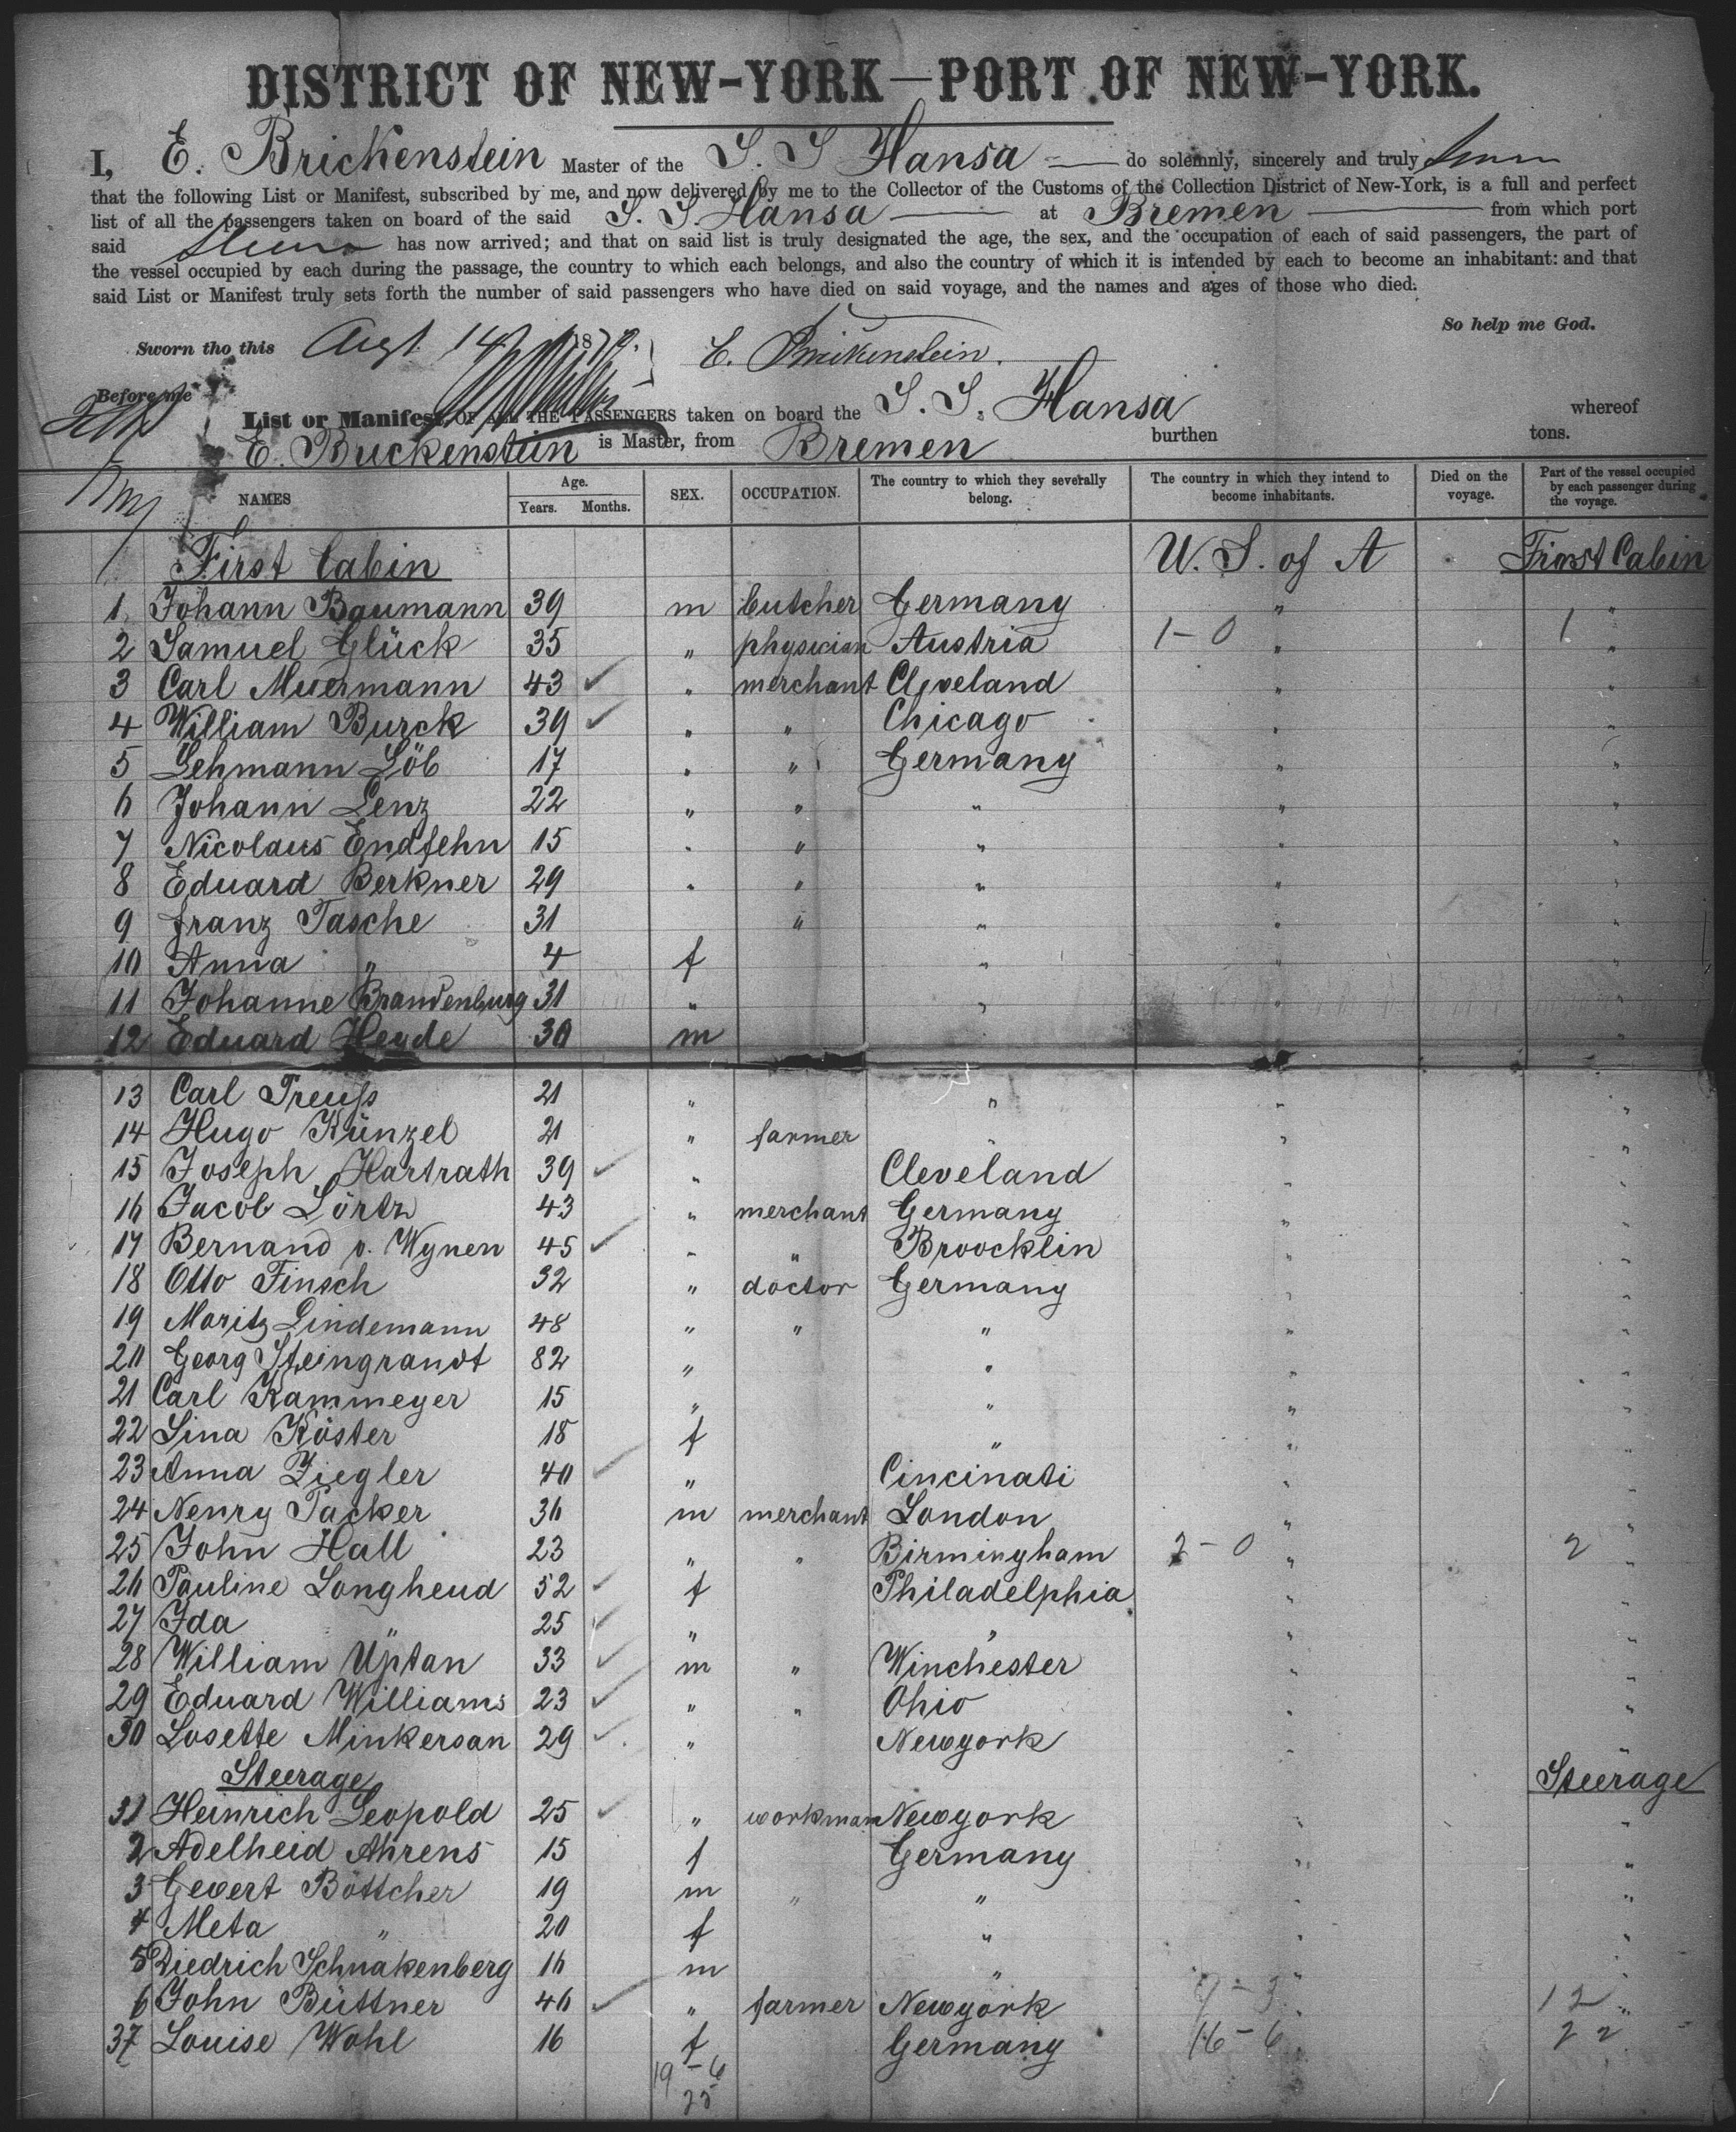 DISTRICT OF NEW-YORK—PORT OF NEW-YORK.
I, E. Brickenstein Master of the S. S Hansa do solemnly, sincerely and truly swear
that the following List or Manifest, subscribed by me, and now delivered by me to the Collector of the Customs of the Collection District of New-York, is a full and perfect
list of all the passengers taken on board of the said S. S. Hansa at Bremen from which port
said has now arrived; and that on said list is truly designated the age, the sex, and the occupation of each of said passengers, the part of
the vessel occupied by each during the passage, the country to which each belongs, and also the country of which it is intended by each to become an inhabitant: and that
said List or Manifest truly sets forth the number of said passengers who have died on said voyage, and the names and ages of those who died.
So help me God.
Sworn tho this Augt 14 187 E. Brickenstein.
Before me
List or Manifest, OF ALL THE PASSENGERS taken on board the S. S. Hansa whereof
E. Brickenstein is Master, from Bremen burthen tons.
NAMES Age. Years. Months. SEX. OCCUPATION. The country to which they severally belong. The country in which they intend to become inhabitants. Died on the voyage. Part of the vessel occupied by each passenger during the voyage.
First Cabin U. S. of A First Cabin
1 Johann Baumann 39 m butcher Germany " "
2 Samuel Glück 35 " physician Austria 1-0 " 1 "
3 Carl Muermann 43 ✓ " merchant Cleveland " "
4 William Burck 39 ✓ " " Chicago " "
5 Lehmann Löb 17 " " Germany " "
6 Johann Lenz 22 " " " " "
7 Nicolaus Endfehn 15 " " " " "
8 Eduard Berkner 29 " " " " "
9 franz Tasche 31 " " " "
10 Anna " 4 f " " "
11 Johanne Brandenburg 31 " " " "
12 Eduard Heyde 30 m "
13 Carl Preuß 21 " " " "
14 Hugo Künzel 21 " farmer " " "
15 Joseph Hartrath 39 ✓ " Cleveland " "
16 Jacob Lörtz 43 " merchant Germany " "
17 Bernand v. Wynen 45 ✓ " " Broocklin " "
18 Otto Finsch 32 " doctor Germany " "
19 Moritz Lindemann 48 " " " " "
20 Georg Steingrandt 82 " " " "
21 Carl Kammeyer 15 " " " "
22 Lina Köster 18 f " " "
23 Anna Ziegler 40 ✓ " Cincinati " "
24 Nenry Packer 36 m merchant London " "
25 John Hall 23 " " Birmingham 2-0 " 2 "
26 Pauline Longheud 52 ✓ f Philadelphia " "
27 Ida " 25 ✓ " " " "
28 William Uptan 33 ✓ m " Winchester " "
29 Eduard Williams 23 ✓ " " Ohio " "
30 Losette Minkersan 29 ✓ " Newyork " "
Steerage Steerage
31 Heinrich Leopold 25 ✓ " workman Newyork " "
2 Adelheid Ahrens 15 f Germany " "
3 Gevert Böttcher 19 m " " " "
4 Meta " 20 f " " "
5 Diedrich Schnakenberg 16 m " " "
6 John Büttner 46 ✓ " farmer Newyork 9-3 " 12 "
37 Louise Wohl 16 f Germany 16-6 " 22 "
19-6
25